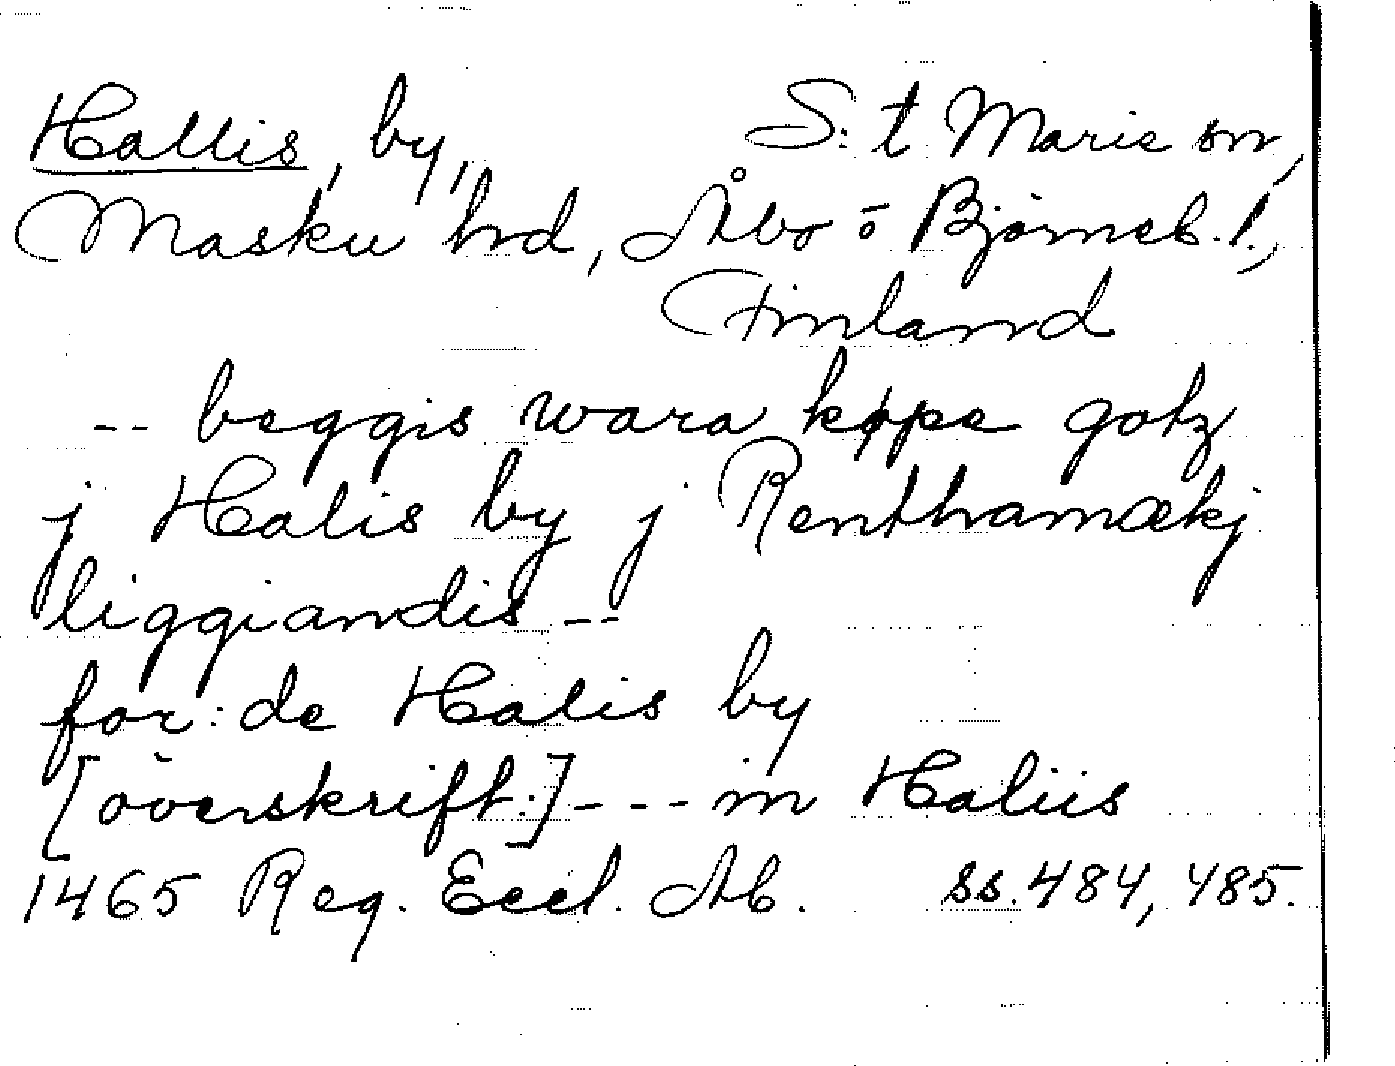 Hallis, by, S:t Marie sn,
Masku hrd, Åbo o Björneb. l.,
Finland
-- beggis wara køpe gotz
j Halis by j Renthamækj
liggiandis --
for: de Halis by
[överskrift:] --- in Haliis
1465 Reg. Eccl. Ab. ss. 484, 485.